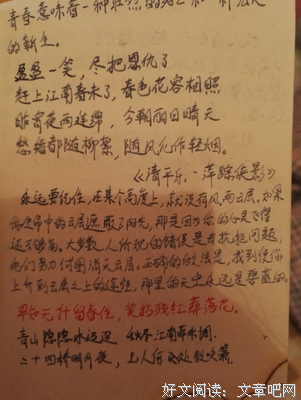 青春意味着一种壮烈的
的新生。
盈盈一笑，尽把恩仇了
赶上江南春未了，春色花容相照
昨宵夜雨连绵，今朝丽日晴天
愁绪都随柳絮，随风化作轻烟。
《清平乐·萍踪侠影》
永远要记住，在某个高度上，就没有风雨云层。如果
你生命中的云层遮蔽了阳光，那是因为你的心灵飞得
还不够高。大多数人所犯的错误是去抗拒问题，
他们努力试图消灭云层。正确的做法是，找到使你
上升到云层之上的途径，那里的天空永远是碧蓝的。
早知无计留春住，笑扔残红葬落花。
青山隐隐水迢迢 秋尽江南草未凋
二十四桥明月夜，玉人何处教吹箫。
好文阅读：文章吧网